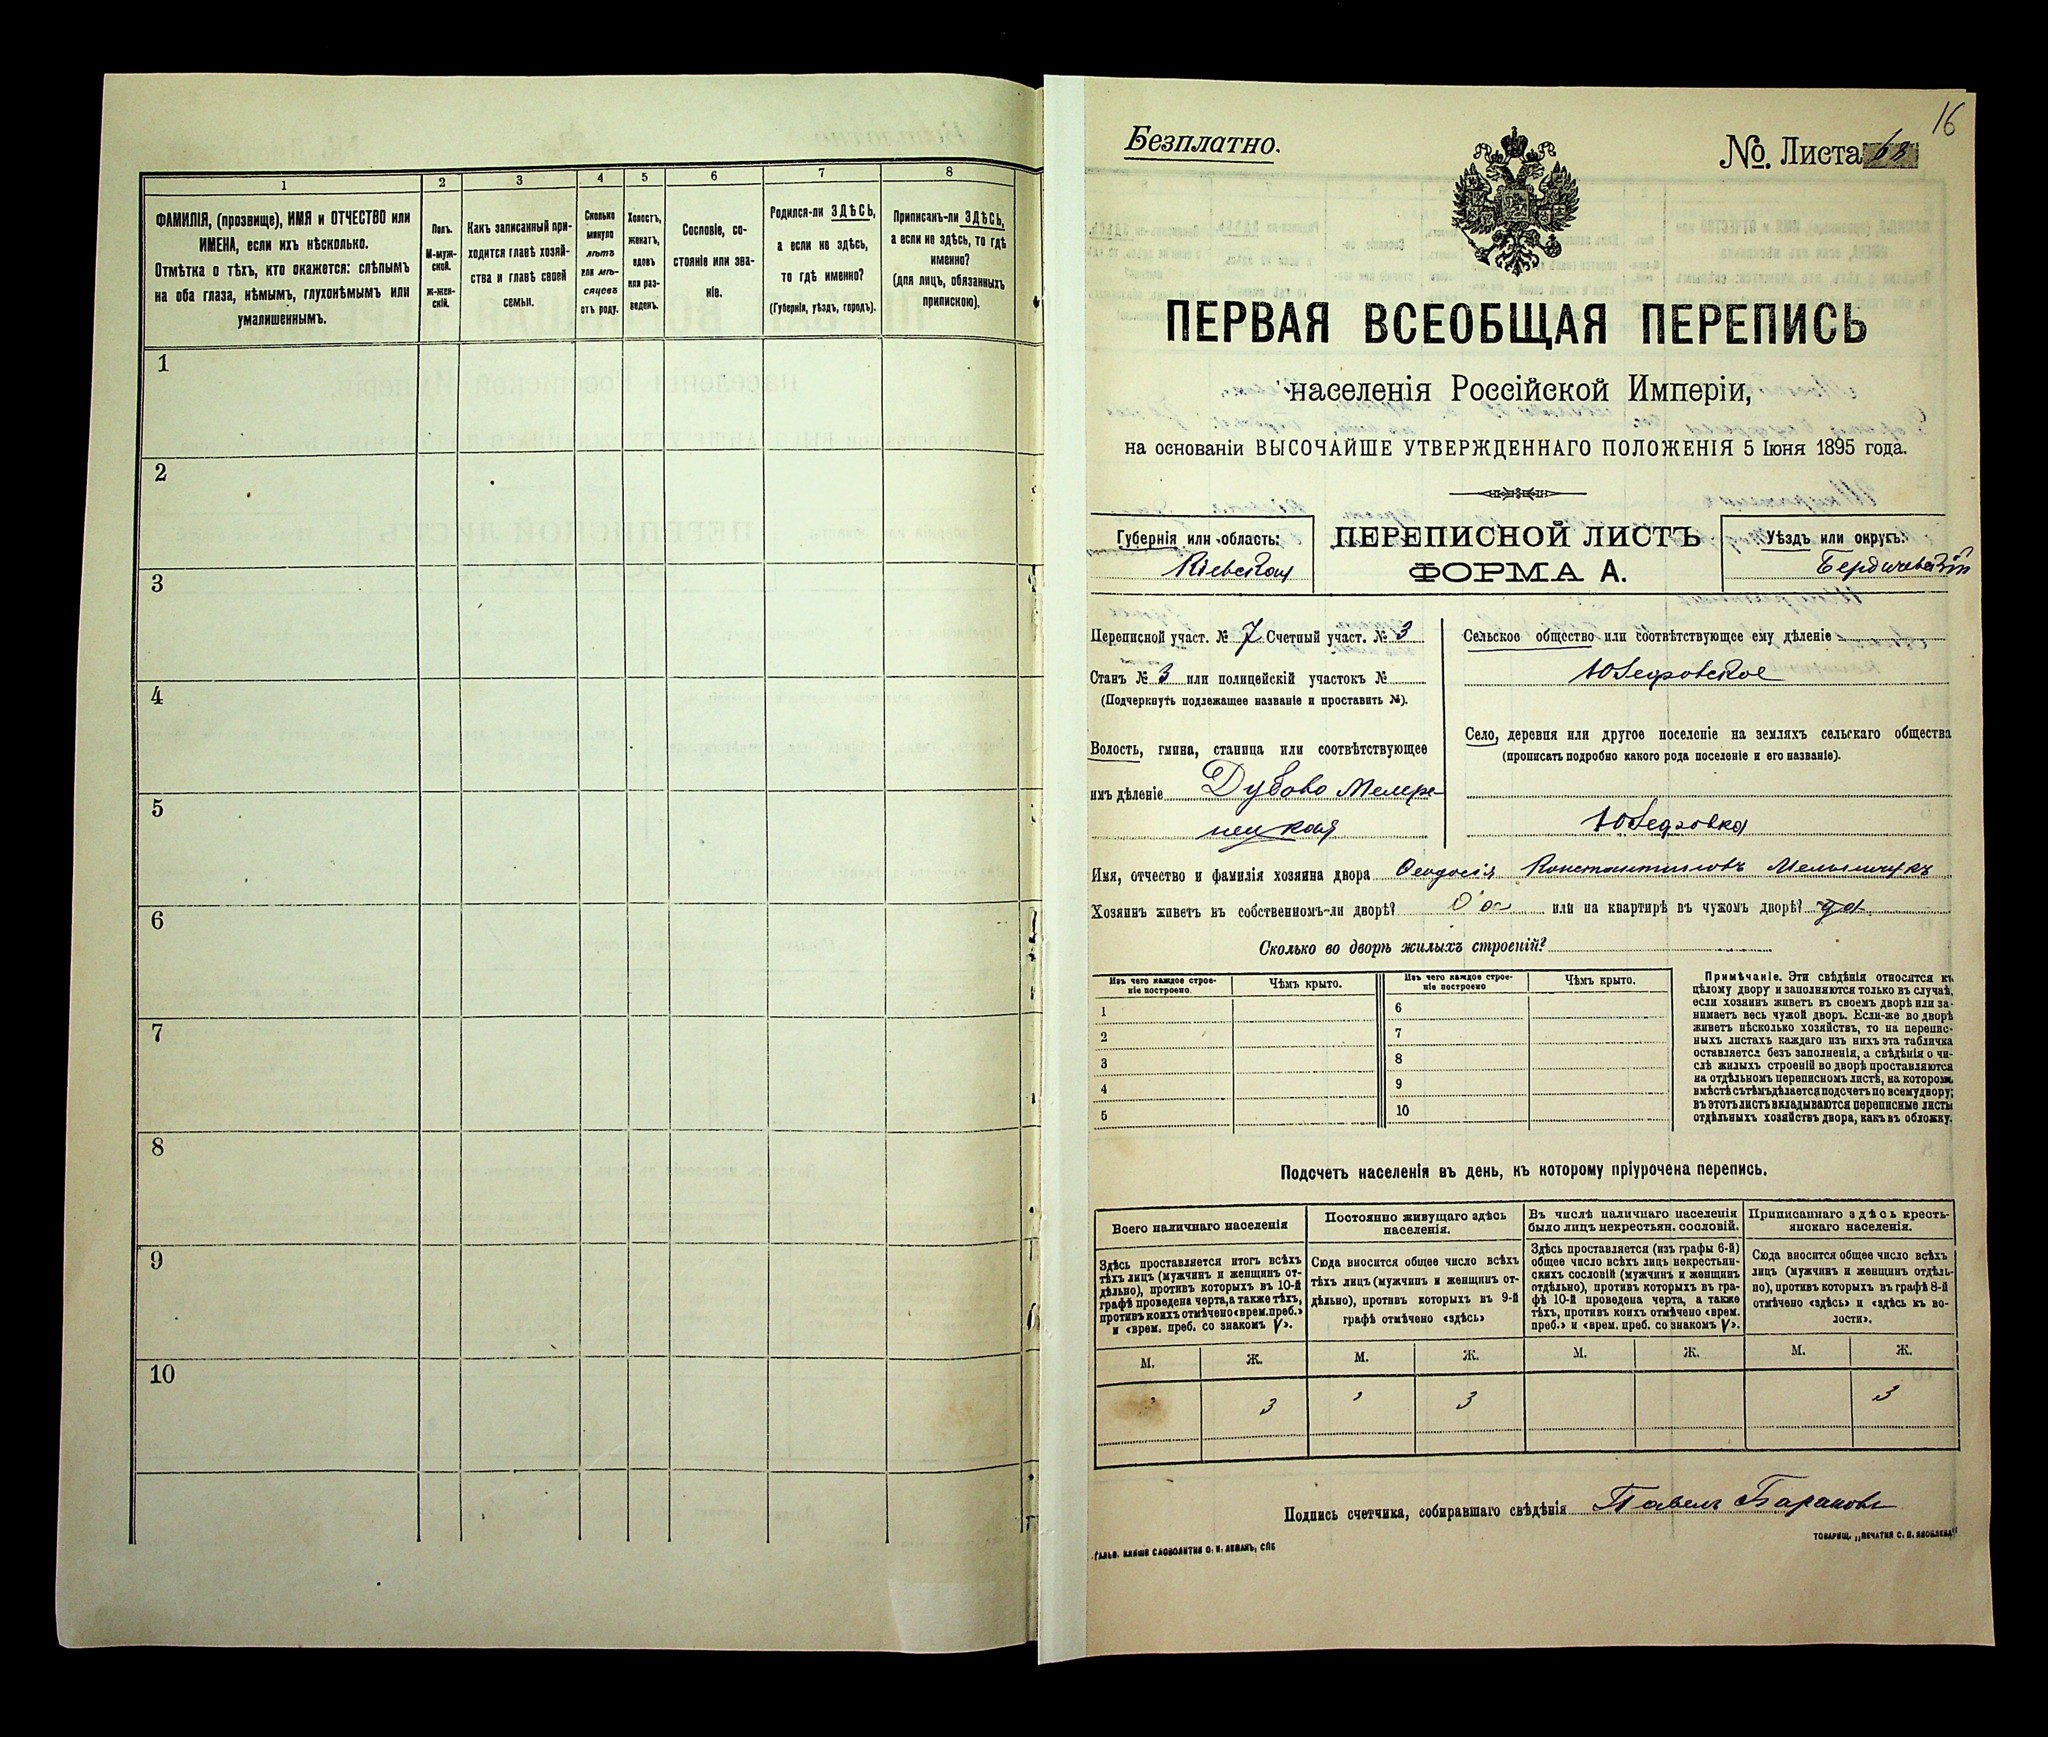 1
2
3
4
5
6
7
8
ФАМИЛІЯ, (прозвище), ИМЯ и ОТЧЕСТВО или
ИМЕНА, если ихъ нѣсколько.
Отмѣтка о тѣхъ, кто окажется: слѣпымъ
на оба глаза, нѣмымъ, глухонѣмымъ или
умалишеннымъ.
Полъ.
М-муж-
ской.
ж-жен-
скій.
Какъ записанный при-
ходится главѣ хозяй-
ства и главѣ своей
семьи.
Сколько
минуло
лѣтъ
или мѣ-
сяцевъ
отъ роду.
Холостъ,
женатъ,
вдовъ
или раз-
веденъ.
Сословіе, со-
стояніе или зва-
ніе.
Родился-ли ЗДѢСЬ,
а если не здѣсь,
то гдѣ именно?
(Губернія, уѣздъ, городъ).
Приписанъ-ли ЗДѢСЬ,
а если не здѣсь, то гдѣ
именно?
(для лицъ, обязанныхъ
припискою).
1
2
3
4
5
6
7
8
9
10
16
Безплатно.
№. Листа 68
ПЕРВАЯ ВСЕОБЩАЯ ПЕРЕПИСЬ
населенія Россійской Имперіи,
на основаніи ВЫСОЧАЙШЕ УТВЕРЖДЕННАГО ПОЛОЖЕНІЯ 5 Іюня 1895 года.
Губернія или область:
Кіевская
ПЕРЕПИСНОЙ ЛИСТЪ
ФОРМА А.
Уѣздъ или округъ:
Бердичевскій
Переписной участ. № 7 Счетный участ. № 3
Станъ № 3 или полицейскій участокъ №
(Подчеркнуть подлежащее названіе и проставить №).
Волость, гмина, станица или соотвѣтствующее
имъ дѣленіе Дубово
Сельское общество или соотвѣтствующее ему дѣленіе
Село, деревня или другое поселеніе на земляхъ сельскаго общества
(прописать подробно какого рода поселеніе и его названіе).
Имя, отчество и фамилія хозяина двора Феодосія Константиновъ Мельничукъ
Хозяинъ живетъ въ собственномъ-ли дворѣ? да или на квартирѣ въ чужомъ дворѣ? да
Сколько во дворѣ жилыхъ строеній?
Изъ чего каждое строе-
ніе построено
Чѣмъ крыто.
Изъ чего каждое строе-
ніе построено
Чѣмъ крыто.
1
2
3
4
5
6
7
8
9
10
Примѣчаніе. Эти свѣдѣнія относятся къ
цѣлому двору и заполняются только въ случаѣ,
если хозяинъ живетъ въ своемъ дворѣ или за-
нимаетъ весь чужой дворъ. Если-же во дворѣ
живетъ нѣсколько хозяйствъ, то на перепис-
ныхъ листахъ каждаго изъ нихъ эта табличка
оставляется безъ заполненія, а свѣдѣнія о чи-
слѣ жилыхъ строеній во дворѣ проставляются
на отдѣльномъ переписномъ листѣ, на которомъ
вмѣстѣ съ тѣмъ дѣлается подсчетъ по всему двору;
въ этотъ листъ вкладываются переписные листы
отдѣльныхъ хозяйствъ двора, какъ въ обложку.
Подсчетъ населенія въ день, къ которому пріурочена перепись.
Всего наличнаго населенія
Здѣсь проставляется итогъ всѣхъ
тѣхъ лицъ (мужчинъ и женщинъ от-
дѣльно), противъ которыхъ въ 10-й
графѣ проведена черта, а также тѣхъ,
противъ коихъ отмѣчено «врем. преб.»
и «врем. преб. со знакомъ V».
Постоянно живущаго здѣсь
населенія.
Сюда вносится общее число всѣхъ
тѣхъ лицъ (мужчинъ и женщинъ от-
дѣльно), противъ которыхъ въ 9-й
графѣ отмѣчено «здѣсь»
Въ числѣ наличнаго населенія
было лицъ некрестьян. сословій.
Здѣсь проставляется (изъ графы 6-й)
общее число всѣхъ лицъ некрестьян-
скихъ сословій (мужчинъ и женщинъ
отдѣльно), противъ которыхъ въ гра-
фѣ 10-й проведена черта, а также
тѣхъ, противъ коихъ отмѣчено «врем.
преб.» и «врем. преб. со знакомъ V».
Приписаннаго здѣсь кресть-
янскаго населенія.
Сюда вносится общее число всѣхъ
лицъ (мужчинъ и женщинъ отдѣль-
но), противъ которыхъ въ графѣ 8-й
отмѣчено «здѣсь» и «здѣсь къ во-
лости».
М. Ж. М. Ж. М. Ж. М. Ж.
3 3 3
Подпись счетчика, собиравшаго свѣдѣнія Павелъ Барановъ
ГАЛЬВ. КЛИШЕ СЛОВОЛИТНИ О. И. ЛЕМАНЪ, СПБ
ТОВАРИЩ. „ПЕЧАТНЯ С. П. ЯКОВЛЕВА"